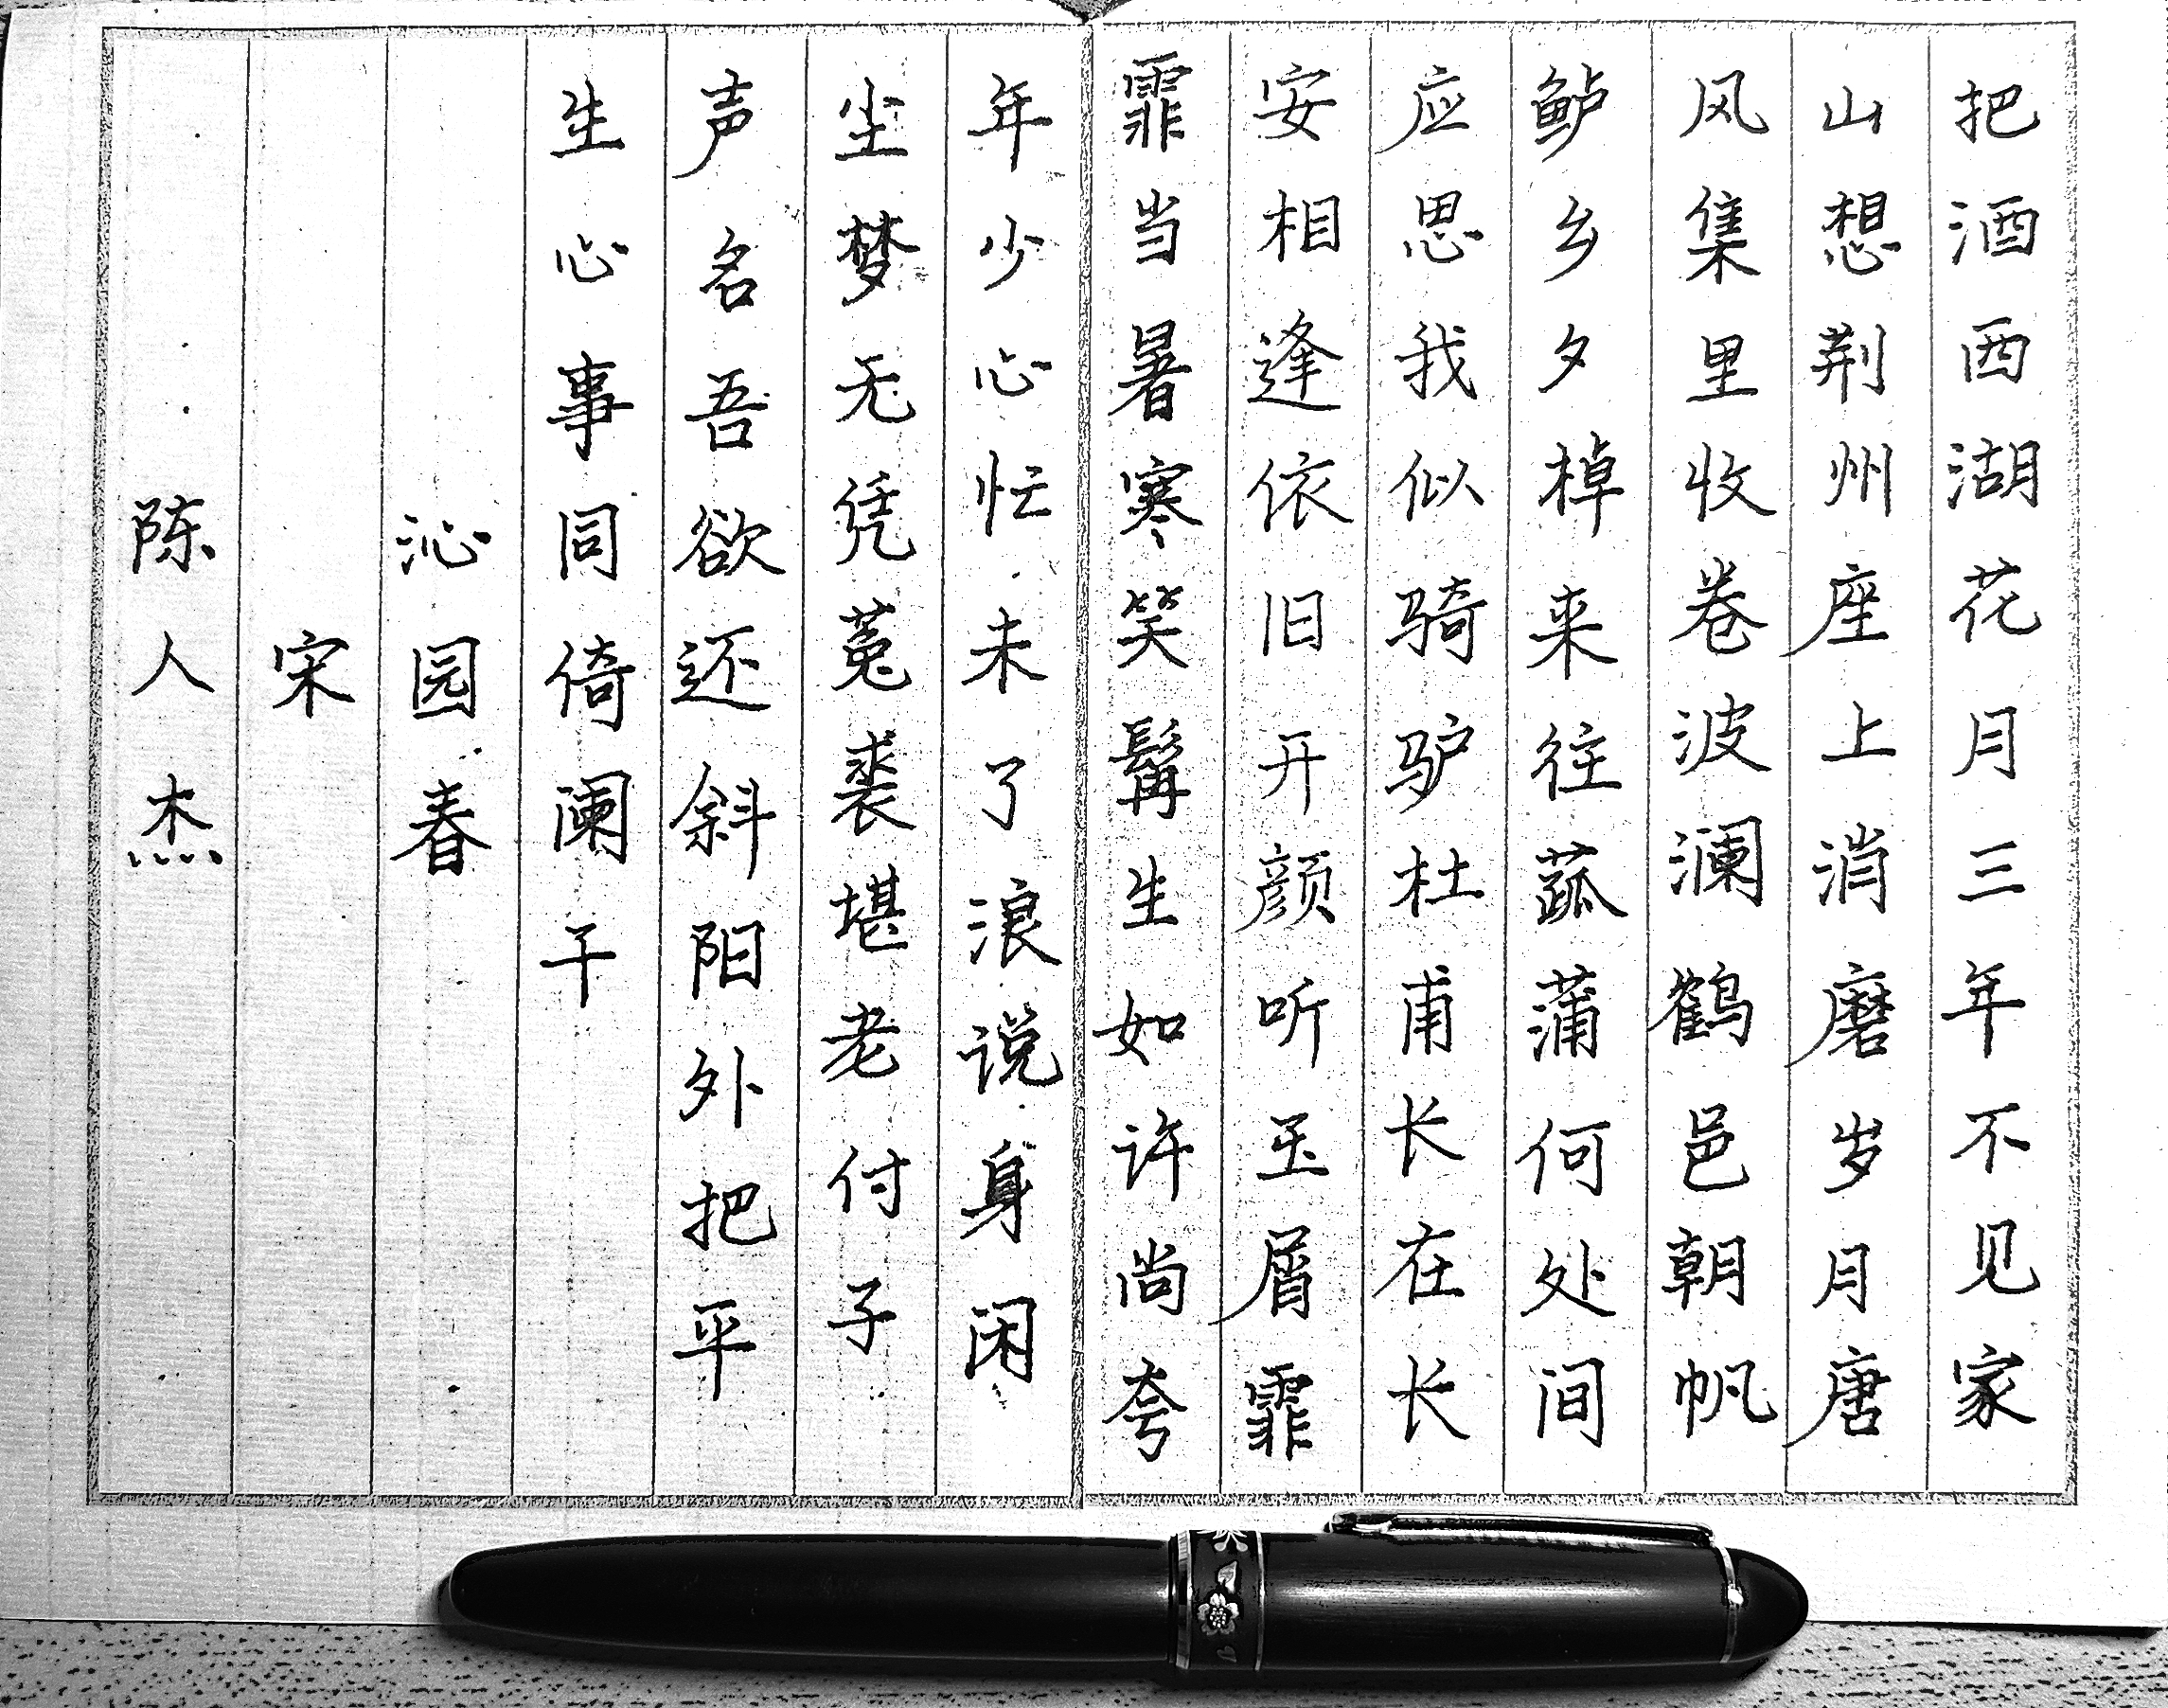 把酒西湖花月三年不见家
山想荆州座上消磨岁月唐
风集里收卷波澜鹤邑朝帆
鲈乡夕棹来往菰蒲何处间
应思我似骑驴杜甫长在长
安相逢依旧开颜听玉屑霏
霏当暑寒笑髯生如许尚夸
年少心忙未了浪说身闲
尘梦无凭菟裘堪老付子
声名吾欲还斜阳外把平
生心事同倚阑干
沁园春
宋
陈人杰